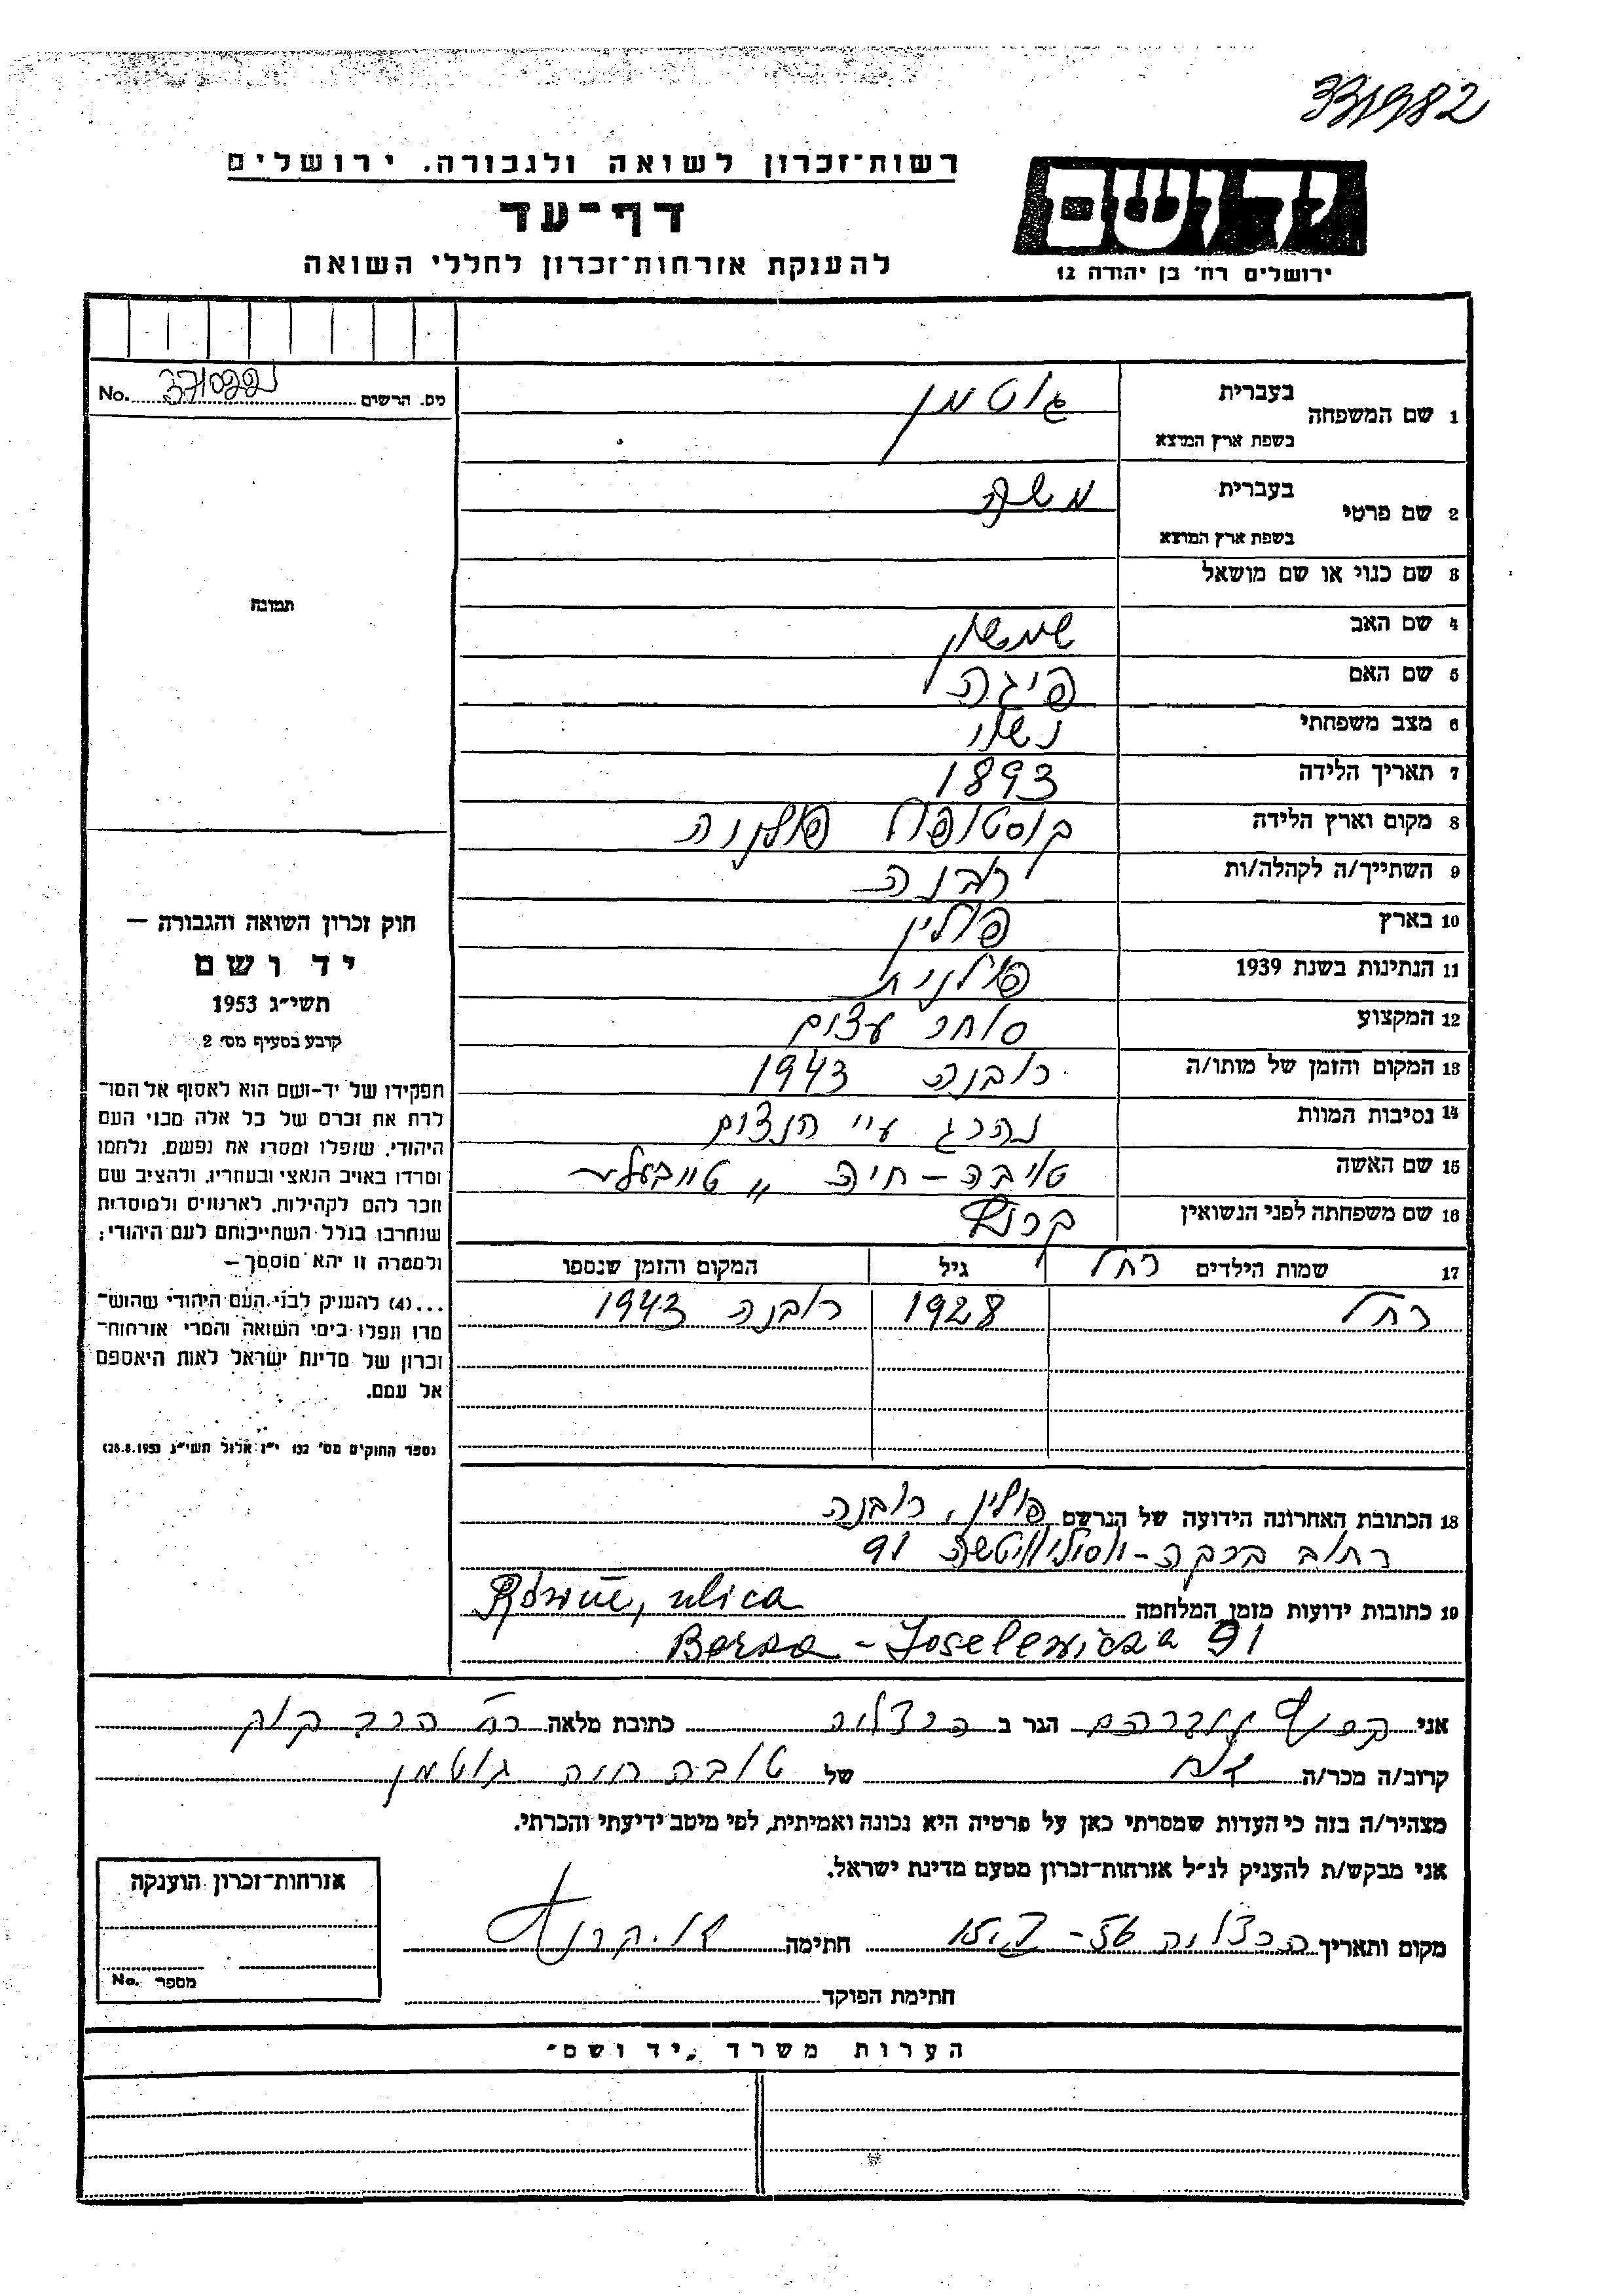 331982
רשות־זכרון לשואה ולגבורה. ירושלים
דף־עד
להענקת אזרחות־זכרון לחללי השואה
יד ושם
ירושלים רח׳ בן יהודה 12
מס. הרשים No.
בעברית גוטמן
1 שם המשפחה
בשפת ארץ המוצא
בעברית משה
2 שם פרטי
בשפת ארץ המוצא
3 שם כנוי או שם מושאל
4 שם האב שמשון
5 שם האם פיגה
6 מצב משפחתי נשוי
7 תאריך הלידה 1893
8 מקום וארץ הלידה קוסטופול פולניה
9 השתייך/ה לקהלה/ות רובנה
10 בארץ פולין
11 הנתינות בשנת 1939 פולנית
12 המקצוע סוחר עצים
13 המקום והזמן של מותו/ה רובנה 1943
14 נסיבות המוות נהרג ע״י הנצים
15 שם האשה טויבה – חיה „ טייבעלע
16 שם משפחתה לפני הנשואין
17 שמות הילדים רחל גיל המקום והזמן שנספו
רחל 1928 רובנה 1943
תמונה
חוק זכרון השואה והגבורה –
יד ושם
תשי״ג 1953
קובע בסעיף מס׳ 2
תפקידו של יד־ושם הוא לאסוף אל המו־
לדת את זכרם של כל אלה מבני העם
היהודי, שנפלו ומסרו את נפשם, נלחמו
ומרדו באויב הנאצי ובעוזריו, ולהציב שם
וזכר להם לקהילות, לארגונים ולמוסדות
שנחרבו בגלל השתייכותם לעם היהודי;
ולמטרה זו יהא מוסמך –
...(4) להענק לבני העם היהודי שהוש־
מדו ונפלו בימי השואה והמרי אזרחות־
זכרון של מדינת ישראל לאות היאספם
אל עמם.
(ספר החוקים מס׳ 132 י״ז אלול תשי״ג 28.8.1953)
18 הכתובת האחרונה הידועה של הנרשם פולין, רובנה
רחוב ברקה - 91
19 כתובות ידועות מזמן המלחמה Równe, ulica
Berka - Joselewicza 91
אני אברהם הגר ב הרצליה כתובת מלאה רח׳ הרב קוק
קרוב/ה מכר/ה אח של טובה חיה גוטמן
מצהיר/ה בזה כי העדות שמסרתי כאן על פרטיה היא נכונה ואמיתית, לפי מיטב ידיעתי והכרתי.
אני מבקש/ת להעניק לנ״ל אזרחות־זכרון מטעם מדינת ישראל.
מקום ותאריך הרצליה חתימה
חתימת הפוקד
אזרחות־זכרון הוענקה
מספר No.
הערות משרד „יד ושם״